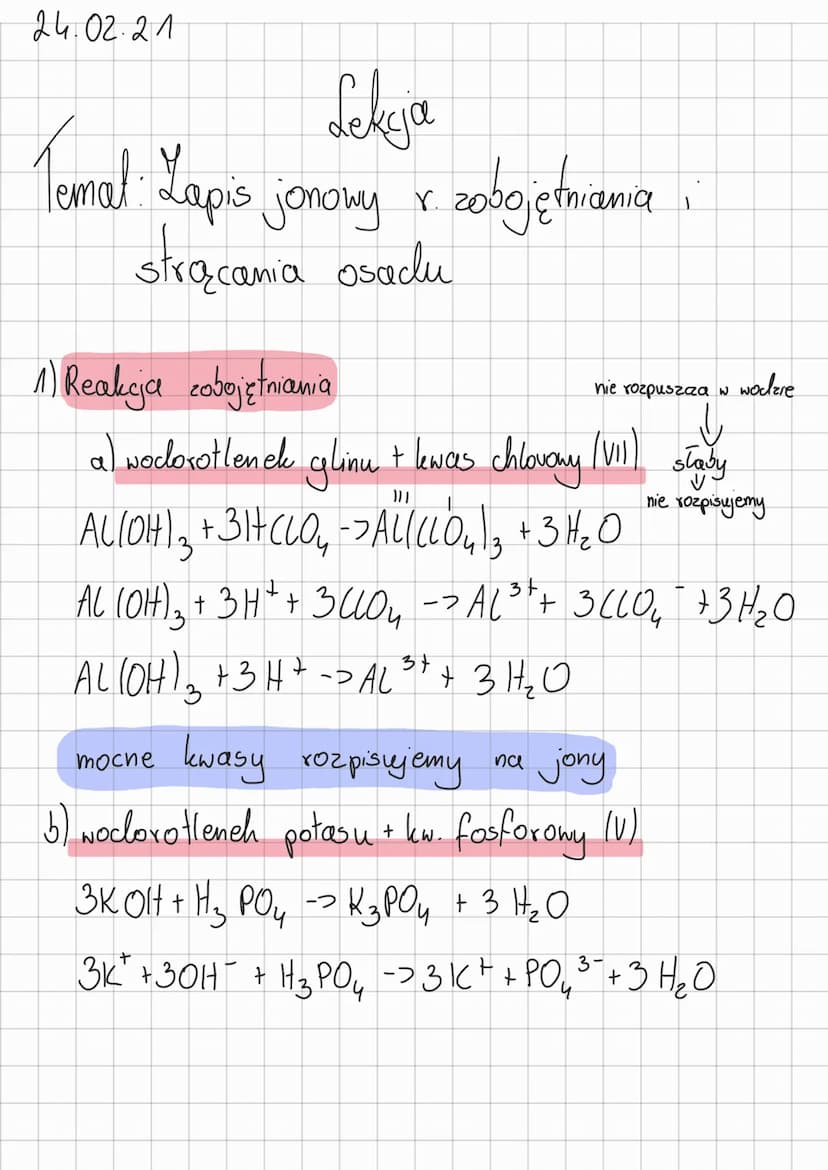 24.02.21
Lekcja
Temat: Zapis jonowy r. zobojętniania i
strącania osadu
1) Reakcja zobojętniania
nie rozpuszcza w wodzie
↓
słaby
↓
nie rozpisujemy
a) wodorotlenek glinu + kwas chlorowy (VII)
III I
Al(OH)₃ + 3HClO₄ -> Al(ClO₄)₃ + 3H₂O
Al(OH)₃ + 3H⁺ + 3ClO₄ -> Al³⁺ + 3ClO₄⁻ + 3H₂O
Al(OH)₃ + 3H⁺ -> Al³⁺ + 3H₂O
mocne kwasy rozpisujemy na jony
b) wodorotlenek potasu + kw. fosforowy (V)
3KOH + H₃PO₄ -> K₃PO₄ + 3H₂O
3K⁺ + 3OH⁻ + H₃PO₄ -> 3K⁺ + PO₄³⁻ + 3H₂O